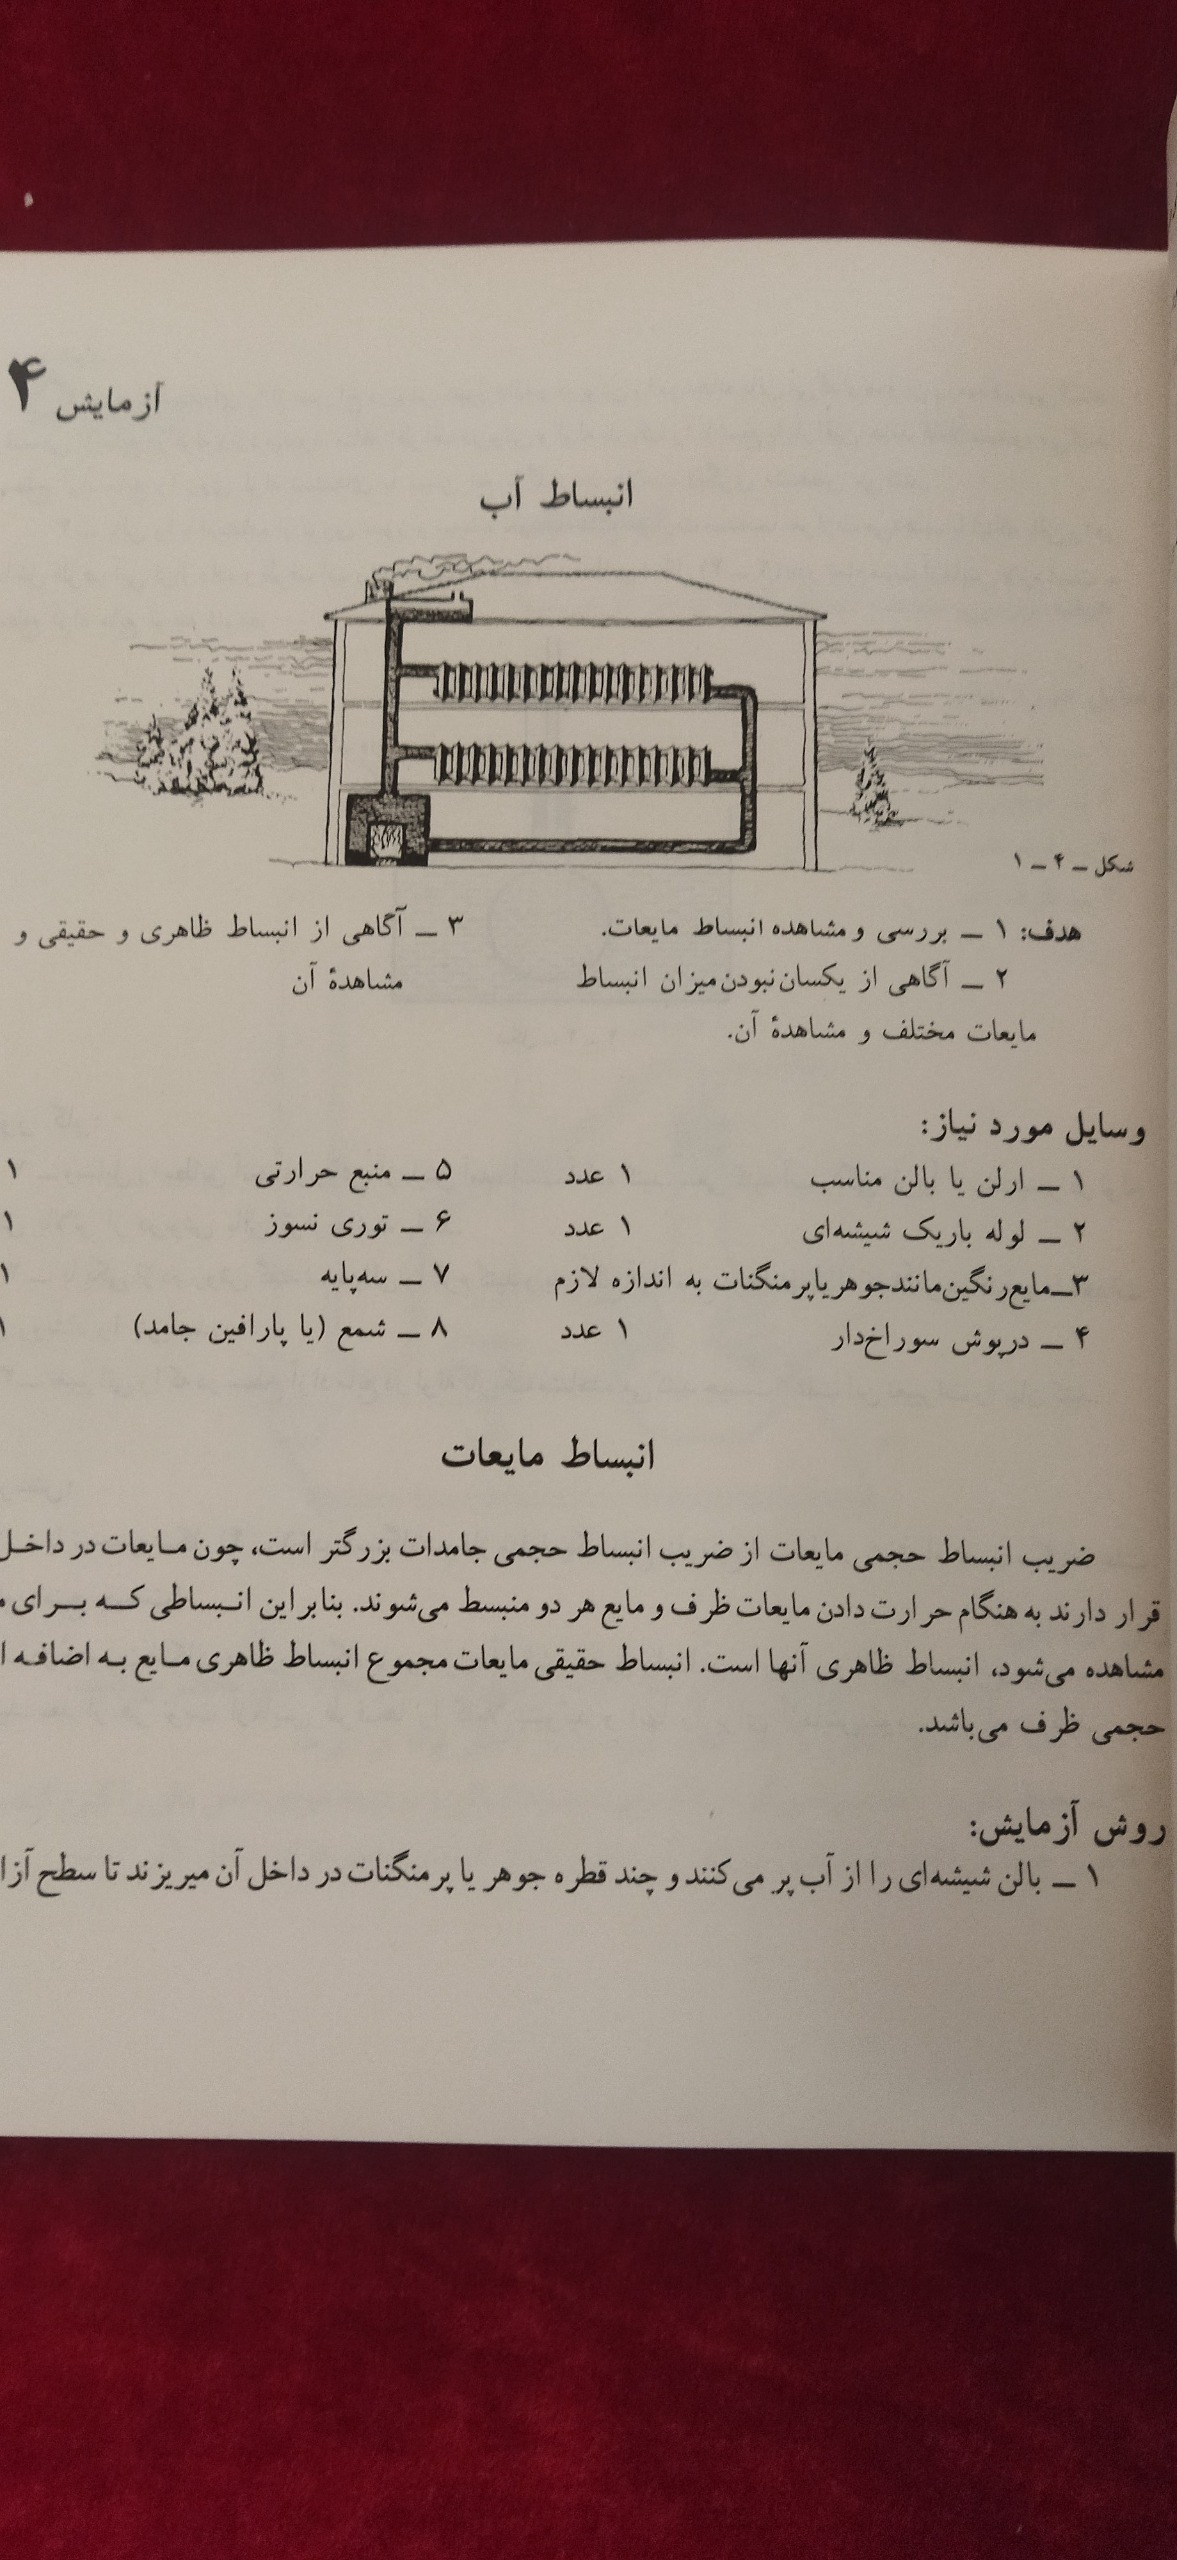 آزمایش ۴
انبساط آب
شکل ــ ۴ ــ ۱
هدف: ۱ ــ بررسی و مشاهده انبساط مایعات.
۲ ــ آگاهی از یکسان‌نبودن میزان انبساط
مایعات مختلف و مشاهدهٔ آن.
۳ ــ آگاهی از انبساط ظاهری و حقیقی و
مشاهدهٔ آن
وسایل مورد نیاز:
۱ ــ ارلن یا بالن مناسب ۱ عدد
۲ ــ لوله باریک شیشه‌ای ۱ عدد
۳ــ مایع رنگین مانند جوهر یا پرمنگنات به اندازه لازم
۴ ــ درپوش سوراخ‌دار ۱ عدد
۵ ــ منبع حرارتی ۱
۶ ــ توری نسوز ۱
۷ ــ سه‌پایه ۱
۸ ــ شمع (یا پارافین جامد) ۱
انبساط مایعات
ضریب انبساط حجمی مایعات از ضریب انبساط حجمی جامدات بزرگتر است، چون مایعات در داخل
قرار دارند به هنگام حرارت دادن مایعات ظرف و مایع هر دو منبسط می‌شوند. بنابراین انبساطی که برای
مشاهده می‌شود، انبساط ظاهری آنها است. انبساط حقیقی مایعات مجموع انبساط ظاهری مایع به اضافه
حجمی ظرف می‌باشد.
روش آزمایش:
۱ ــ بالن شیشه‌ای را از آب پر می‌کنند و چند قطره جوهر یا پرمنگنات در داخل آن میریزند تا سطح